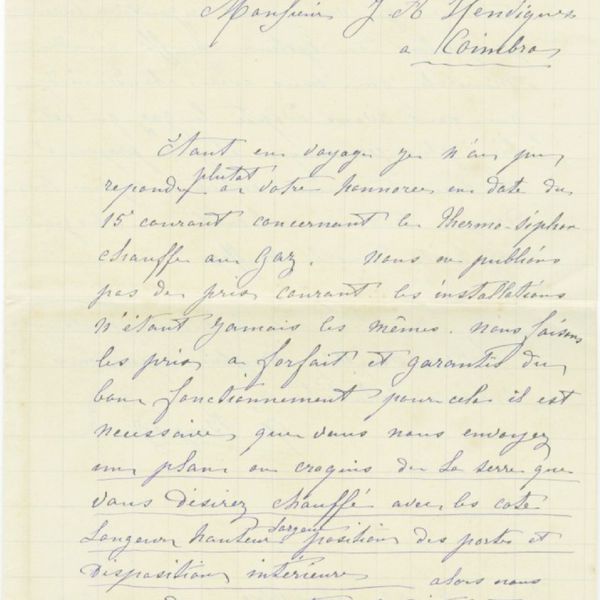 Monsieur J. A Henriques
a Coimbra
Etant en voyage je n'ai pu
repondre plutôt a votre honnorée en date du
15 courant concernant le Thermo-siphon
chauffé au Gaz. Nous ne publions
pas de prix courant les installations
n'étant jamais les mêmes. nous faisons
les prix a forfait et garantis du
bon fonctionnement pour cela il est
necessaire que vous nous envoyez
un plan ou croquis de la serre que
vous désirez chauffé avec les coté
Longeur hauteur largeur position des portes et
Disposition intérieure alors nous